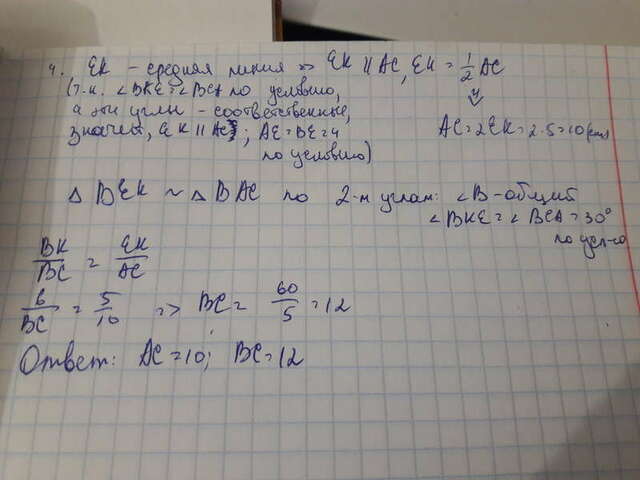 4. EK - средняя линия => EK || AC, EK = 1/2 AC
(т.к. ∠BKE = ∠BCA по условию,
а эти углы - соответственные,
значит, EK || AC; AE = BE = 4
по условию)
AC = 2EK = 2·5 = 10 (см)
△ BEK ~ △ BAC по 2-м углам: ∠B - общий
∠BKE = ∠BCA = 30°
по усл-ю
BK/BC = EK/AC
6/BC = 5/10 => BC = 60/5 = 12
Ответ: AC = 10; BC = 12